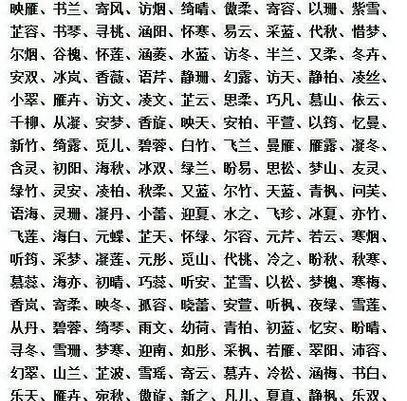 映雁、书兰、寄风、访烟、绮晴、傲柔、寄容、以珊、紫雪、
芷容、书琴、寻桃、涵阳、怀寒、易云、采蓝、代秋、惜梦、
尔烟、谷槐、怀莲、涵菱、水蓝、访冬、半兰、又柔、冬卉、
安双、冰岚、香薇、语芹、静珊、幻露、访天、静柏、凌丝、
小翠、雁卉、访文、凌文、芷云、思柔、巧凡、慕山、依云、
千柳、从凝、安梦、香旋、映天、安柏、平萱、以筠、忆曼、
新竹、绮露、觅儿、碧蓉、白竹、飞兰、曼雁、雁露、凝冬、
含灵、初阳、海秋、冰双、绿兰、盼易、思松、梦山、友灵、
绿竹、灵安、凌柏、秋柔、又蓝、尔竹、天蓝、青枫、问芙、
语海、灵珊、凝丹、小蕾、迎夏、水之、飞珍、冰夏、亦竹、
飞莲、海白、元蝶、芷天、怀绿、尔容、元芹、若云、寒烟、
听筠、采梦、凝莲、元彤、觅山、代桃、冷之、盼秋、秋寒、
慕蕊、海亦、初晴、巧蕊、听安、芷雪、以松、梦槐、寒梅、
香岚、寄柔、映冬、孤容、晓蕾、安萱、听枫、夜绿、雪莲、
从丹、碧蓉、绮琴、雨文、幼荷、青柏、初蓝、忆安、盼晴、
寻冬、雪珊、梦寒、迎南、如彤、采枫、若雁、翠阳、沛容、
幻翠、山兰、芷波、雪瑶、寄云、慕卉、冷松、涵梅、书白、
乐天、雁卉、宛秋、傲旋、新之、凡儿、夏真、静枫、乐双、